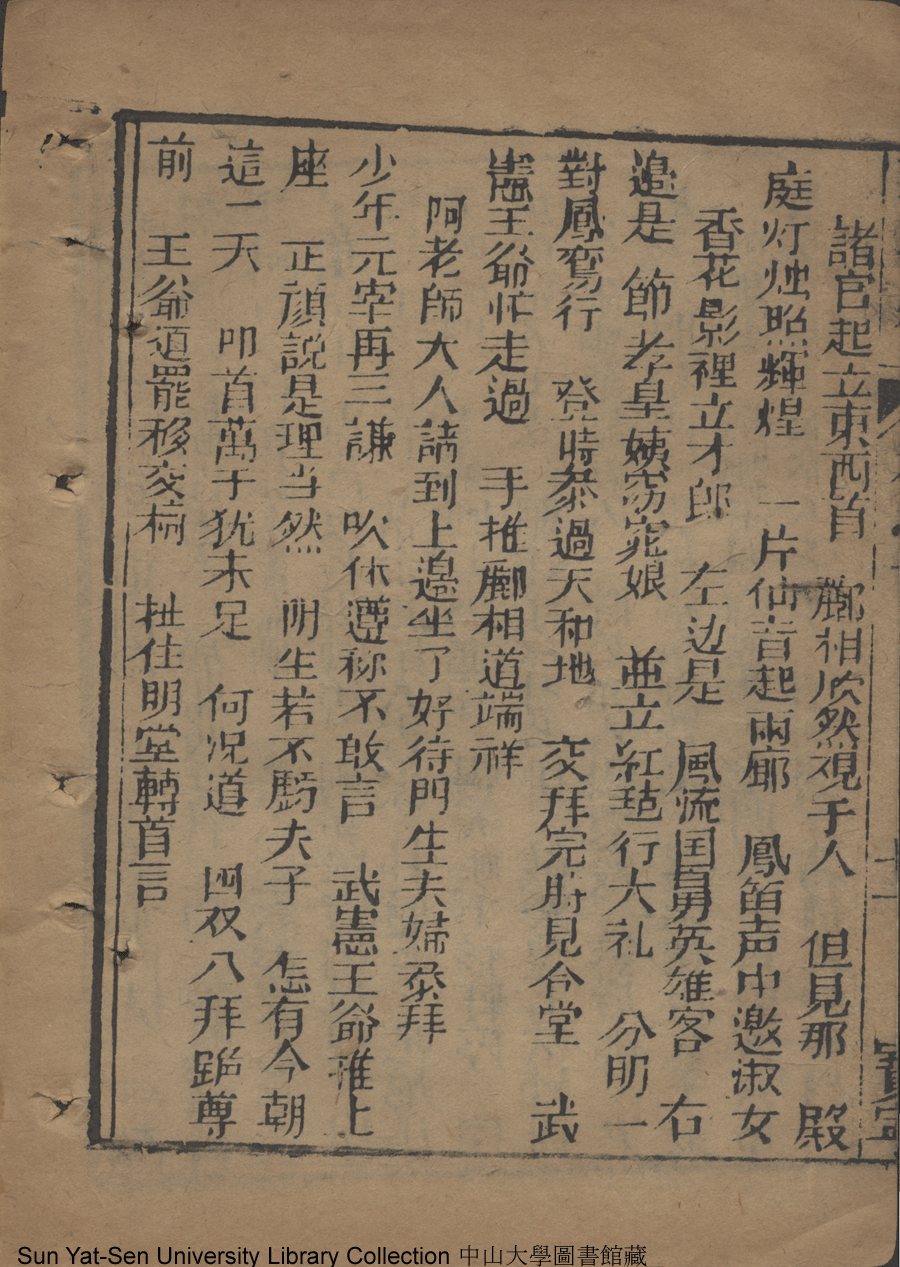 諸官起立東西首　酈相欣然視手人　但見那　殿
庭灯烛照輝煌　一片仙音起兩廊　鳳笛声中邀淑女
香花影裡立才郎　左边是　風流国舅英雄客　右
邉是　節孝皇姨窈窕娘　並立紅毡行大礼　分明一
對鳳鸞行　登時叅過天和地。交拜完時見合堂　武
憲王爺忙走過　手推酈相道端祥
阿老師大人請到上邉坐了好待門生夫婦叅拜
少年元宰再三謙　吹休遵称不敢言　武憲王爺推上
座　正顔説是理当然　門生若不虧夫子　怎有今朝
這一天　叩首萬千犹未足　何况道　四双八拜跪尊
前　王爺道罷移交椅　扯住明堂轉首言
寳寧
Sun Yat-Sen University Library Collection 中山大學圖書館藏